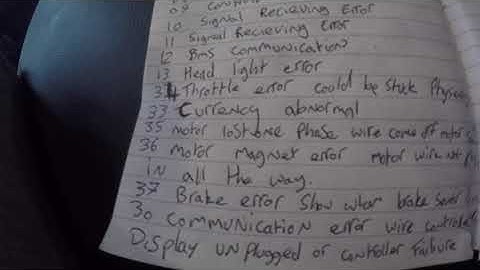 10 Signal Recieving Error
11 Signal Recieving Error
12 Bms Communication
13 Head light error
34 Throttle error could be stuck
33 Currency abnormal
35 motor lost one phase wire come off motor
36 motor magnet error motor wire not
in all the way.
37 Brake error show when brake
30 Communication error wire
Display unplugged or controller failure